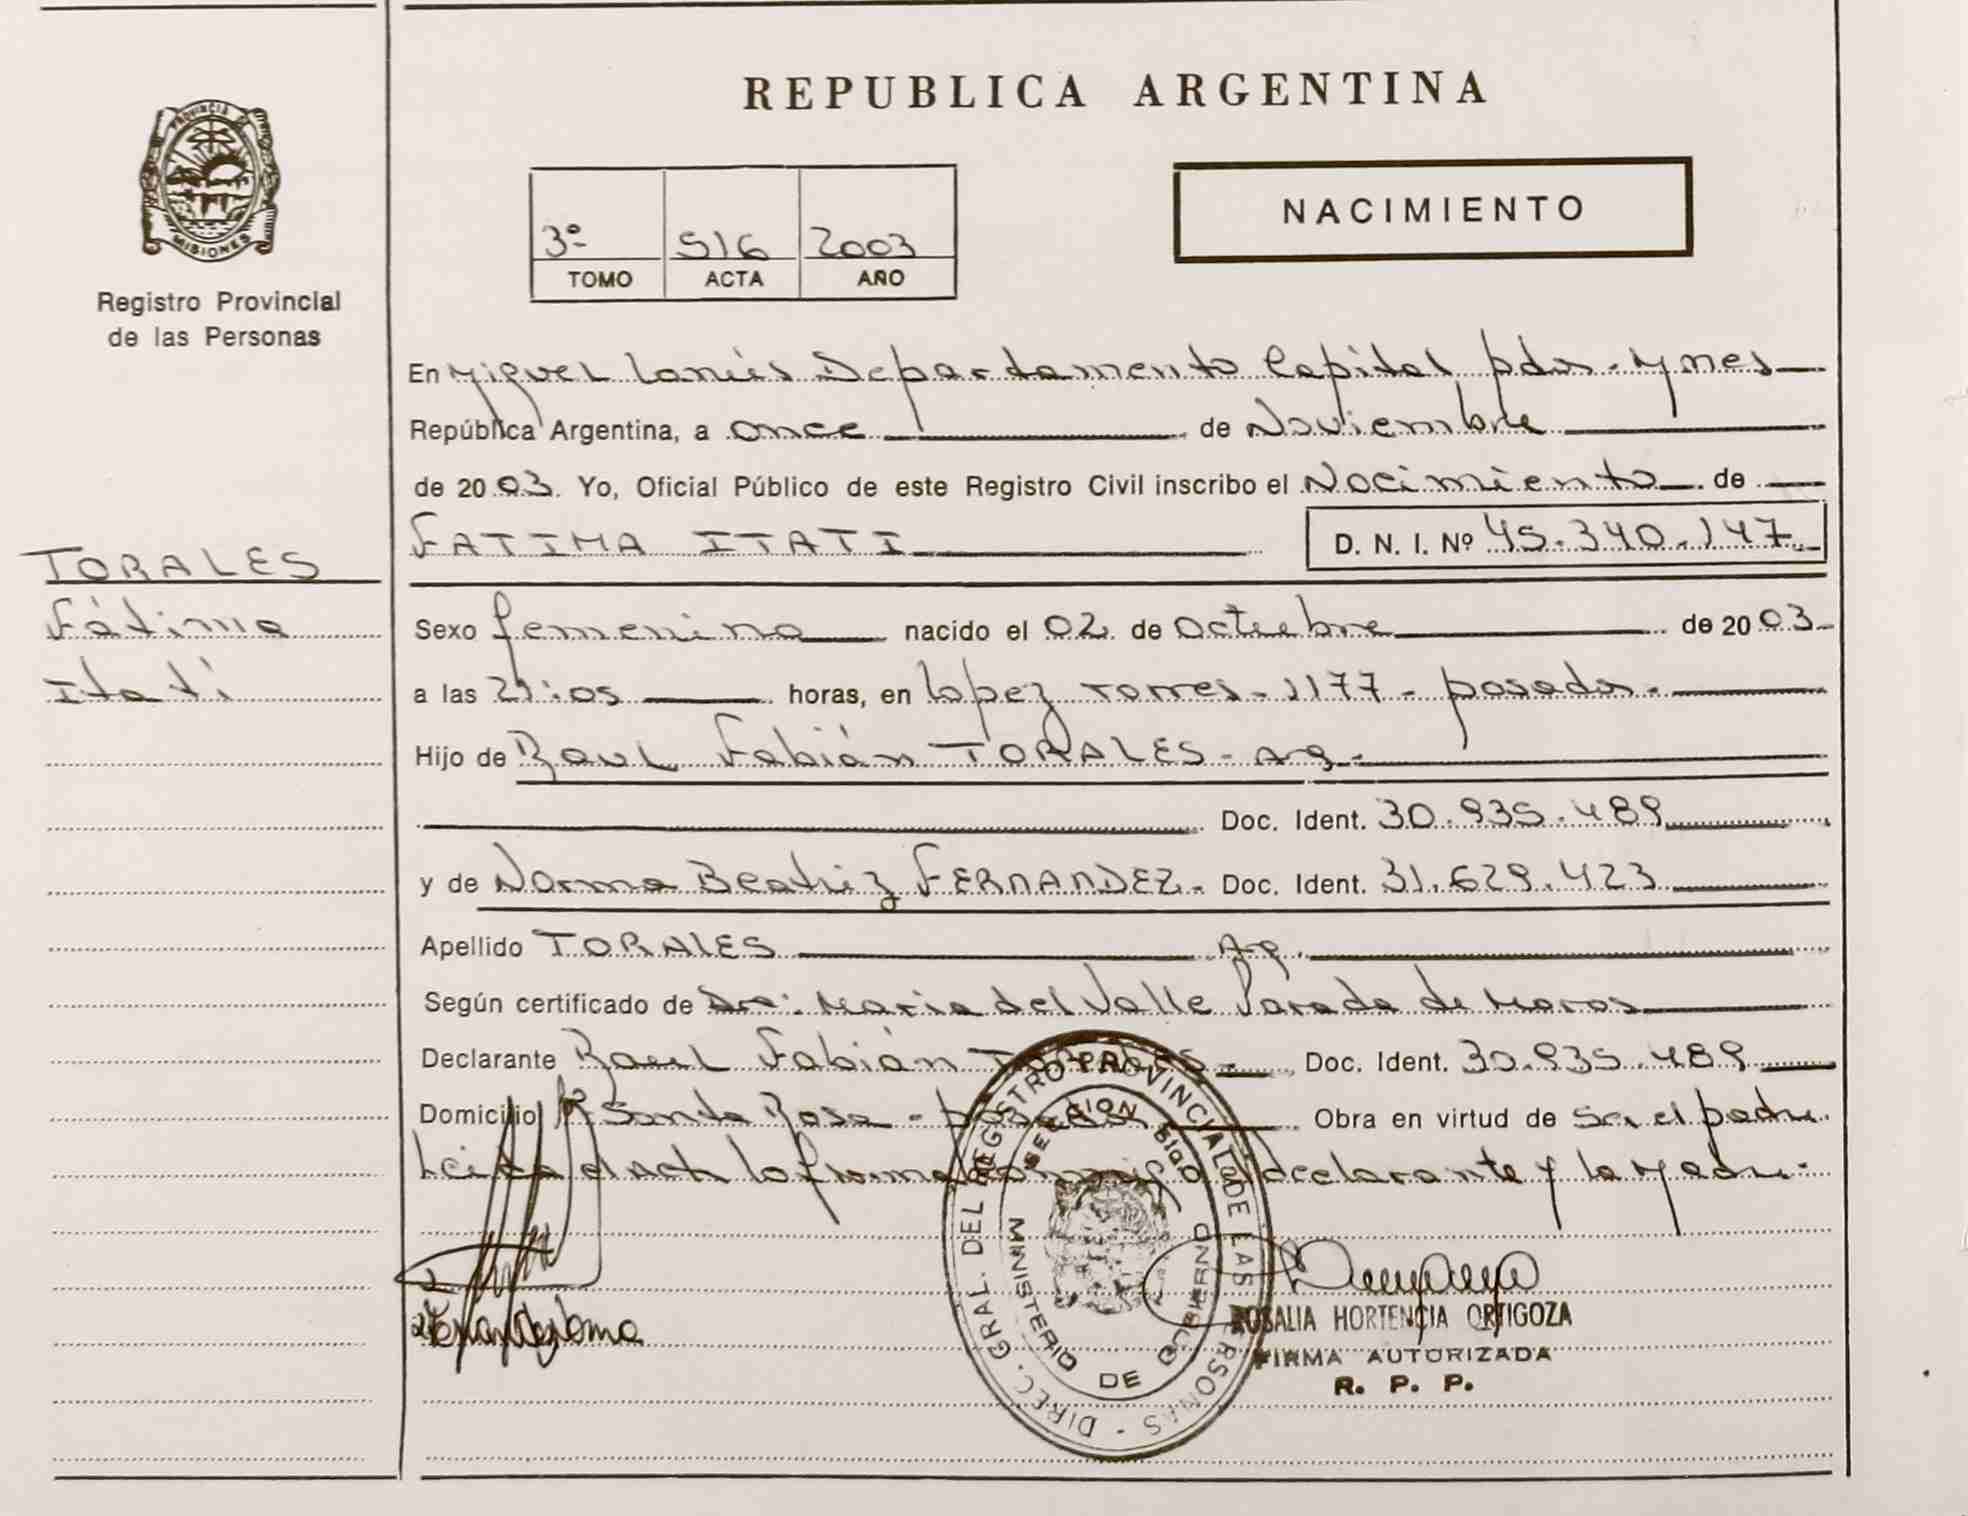 REPUBLICA ARGENTINA
PROVINCIA DE
MISIONES
Registro Provincial
de las Personas
NACIMIENTO
3º 516 2003
TOMO ACTA AÑO
En Miguel Lanús Departamento Capital pdas. Mnes
República Argentina, a once de Noviembre
de 2003. Yo, Oficial Público de este Registro Civil inscribo el Nacimiento de
FATIMA ITATI D. N. I. Nº 45.340.147
TORALES
Fátima
Itatí
Sexo femenino nacido el 02 de octubre de 2003
a las 21:05 horas, en Lopez Torres - 1177 - posadas -
Hijo de Raul Fabián TORALES - arg -
Doc. Ident. 30.935.489
y de Norma Beatriz FERNANDEZ - Doc. Ident. 31.629.423
Apellido TORALES Ap.
Según certificado de Dra: Maria del Valle Parada de Moros
Declarante Raul Fabián TORALES - Doc. Ident. 30.935.489
Domicilio Bº Santa Rosa - posadas Obra en virtud de ser el padre
Leida el Acta la firma conmigo el declarante y la Madre -
DIREC. GRAL. DEL REGISTRO PROVINCIAL DE LAS PERSONAS
MINISTERIO DE GOBIERNO
ROSALIA HORTENCIA ORTIGOZA
FIRMA AUTORIZADA
R. P. P.